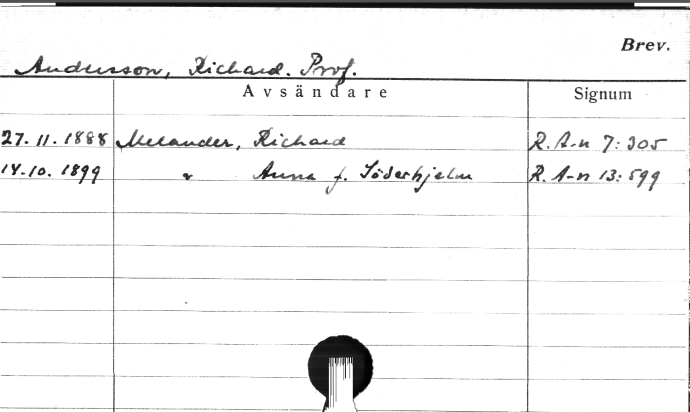 Brev.
Andersson, Richard. Prof.
Avsändare Signum
27.11.1888 Melander, Richard R. A-n 7:305
14.10.1899 " Anna f. Söderhjelm R. A-n 13:599